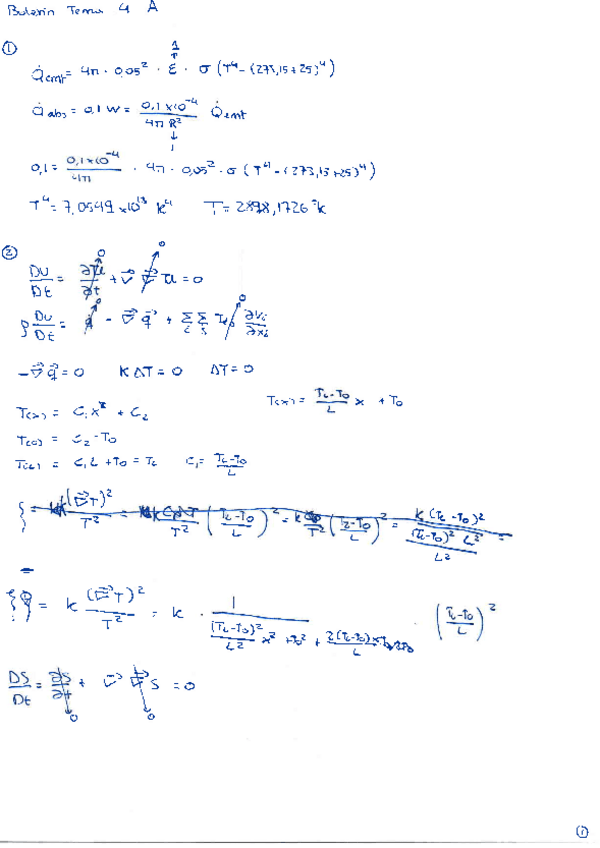 Buletin Tema 4 A
①
1
↑
Q̇emt = 4π · 0,05² · ε · σ (T⁴ - (273,15+25)⁴)
Q̇abs = 0,1 W = 0,1×10⁻⁴ / 4π R² Q̇emt
↓
1
0,1 = 0,1×10⁻⁴ / 4π · 4π · 0,05² · σ (T⁴ - (273,15+25)⁴)
T⁴ = 7,0549×10¹³ K⁴ T = 2898,1726 °K
②
Du/Dt = ∂u/∂t + v⃗ ∇⃗ u = 0
ρ Du/Dt = q̇ - ∇⃗ q⃗ + Σ Σ τ ∂vᵢ/∂xⱼ
-∇⃗ q⃗ = 0 K ΔT = 0 ΔT = 0
T(x) = (T_L-T_0)/L x + T_0
T(x) = C₁ x + C₂
T(0) = C₂ = T_0
T(L) = C₁ L + T_0 = T_L C₁ = (T_L-T_0)/L
= K (∇⃗T)² / T² = K · 1 / ((T_L-T_0)²/L² x² + T_0² + 2(T_L-T_0)x T_0 / L) · ((T_L-T_0)/L)²
DS/Dt = ∂S/∂t + v⃗ ∇⃗ S = 0
①